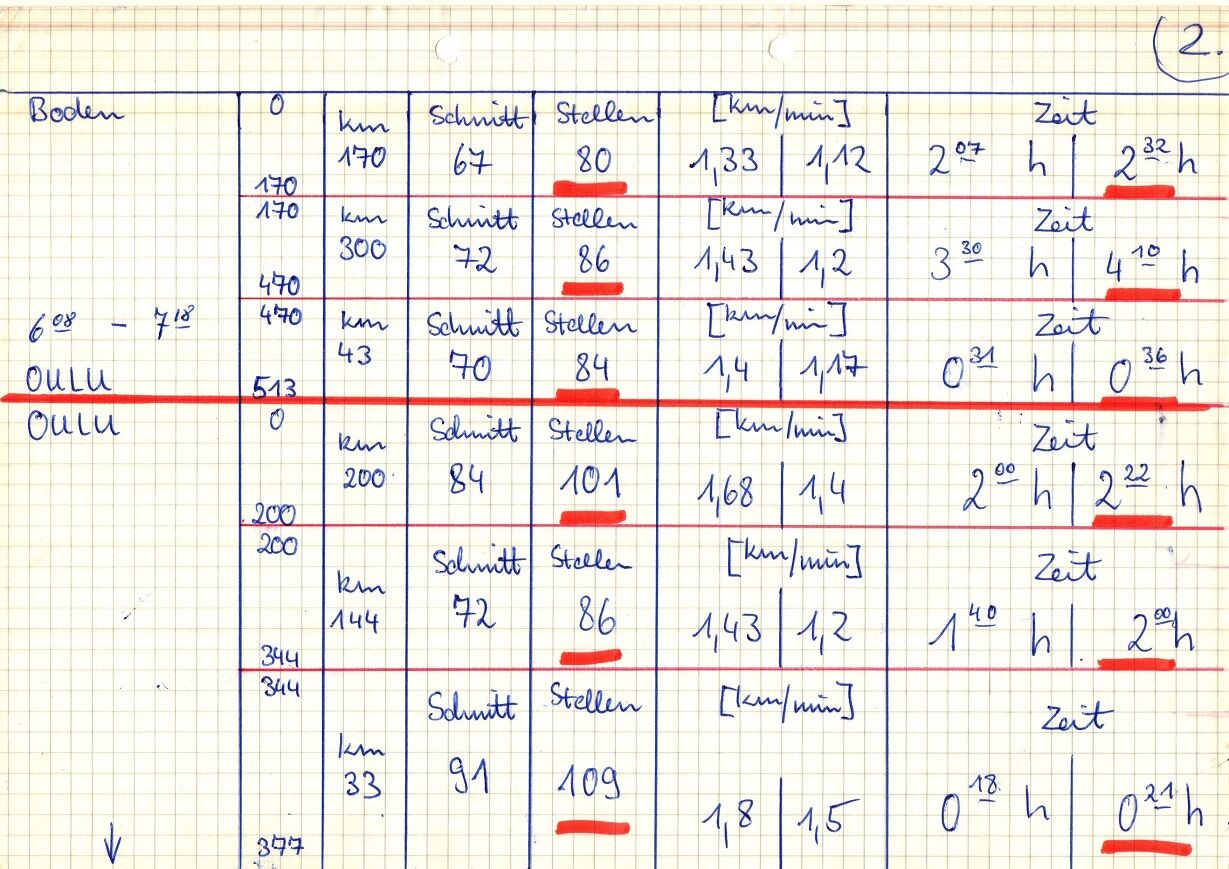 (2.
Boden 0 km Schnitt Stellen [km/min] Zeit
170 170 67 80 1,33 | 1,12 2 07 h | 2 32 h
170 km Schnitt Stellen [km/min] Zeit
470 300 72 86 1,43 | 1,2 3 30 h | 4 10 h
6 08 - 7 18 470 km Schnitt Stellen [km/min] Zeit
OULU 513 43 70 84 1,4 | 1,17 0 31 h | 0 36 h
OULU 0 km Schnitt Stellen [km/min] Zeit
200 200 84 101 1,68 | 1,4 2 00 h | 2 22 h
200 km Schnitt Stellen [km/min] Zeit
344 144 72 86 1,43 | 1,2 1 40 h | 2 00 h
344 km Schnitt Stellen [km/min] Zeit
377 33 91 109 1,8 | 1,5 0 18 h | 0 21 h